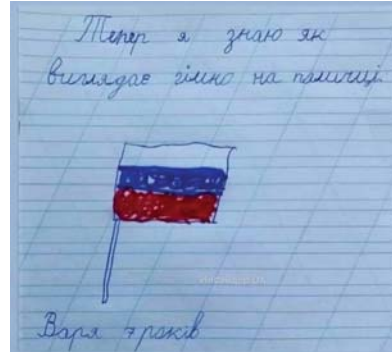 Тепер я знаю як
виглядає гімно на паличці
Варя 7 років